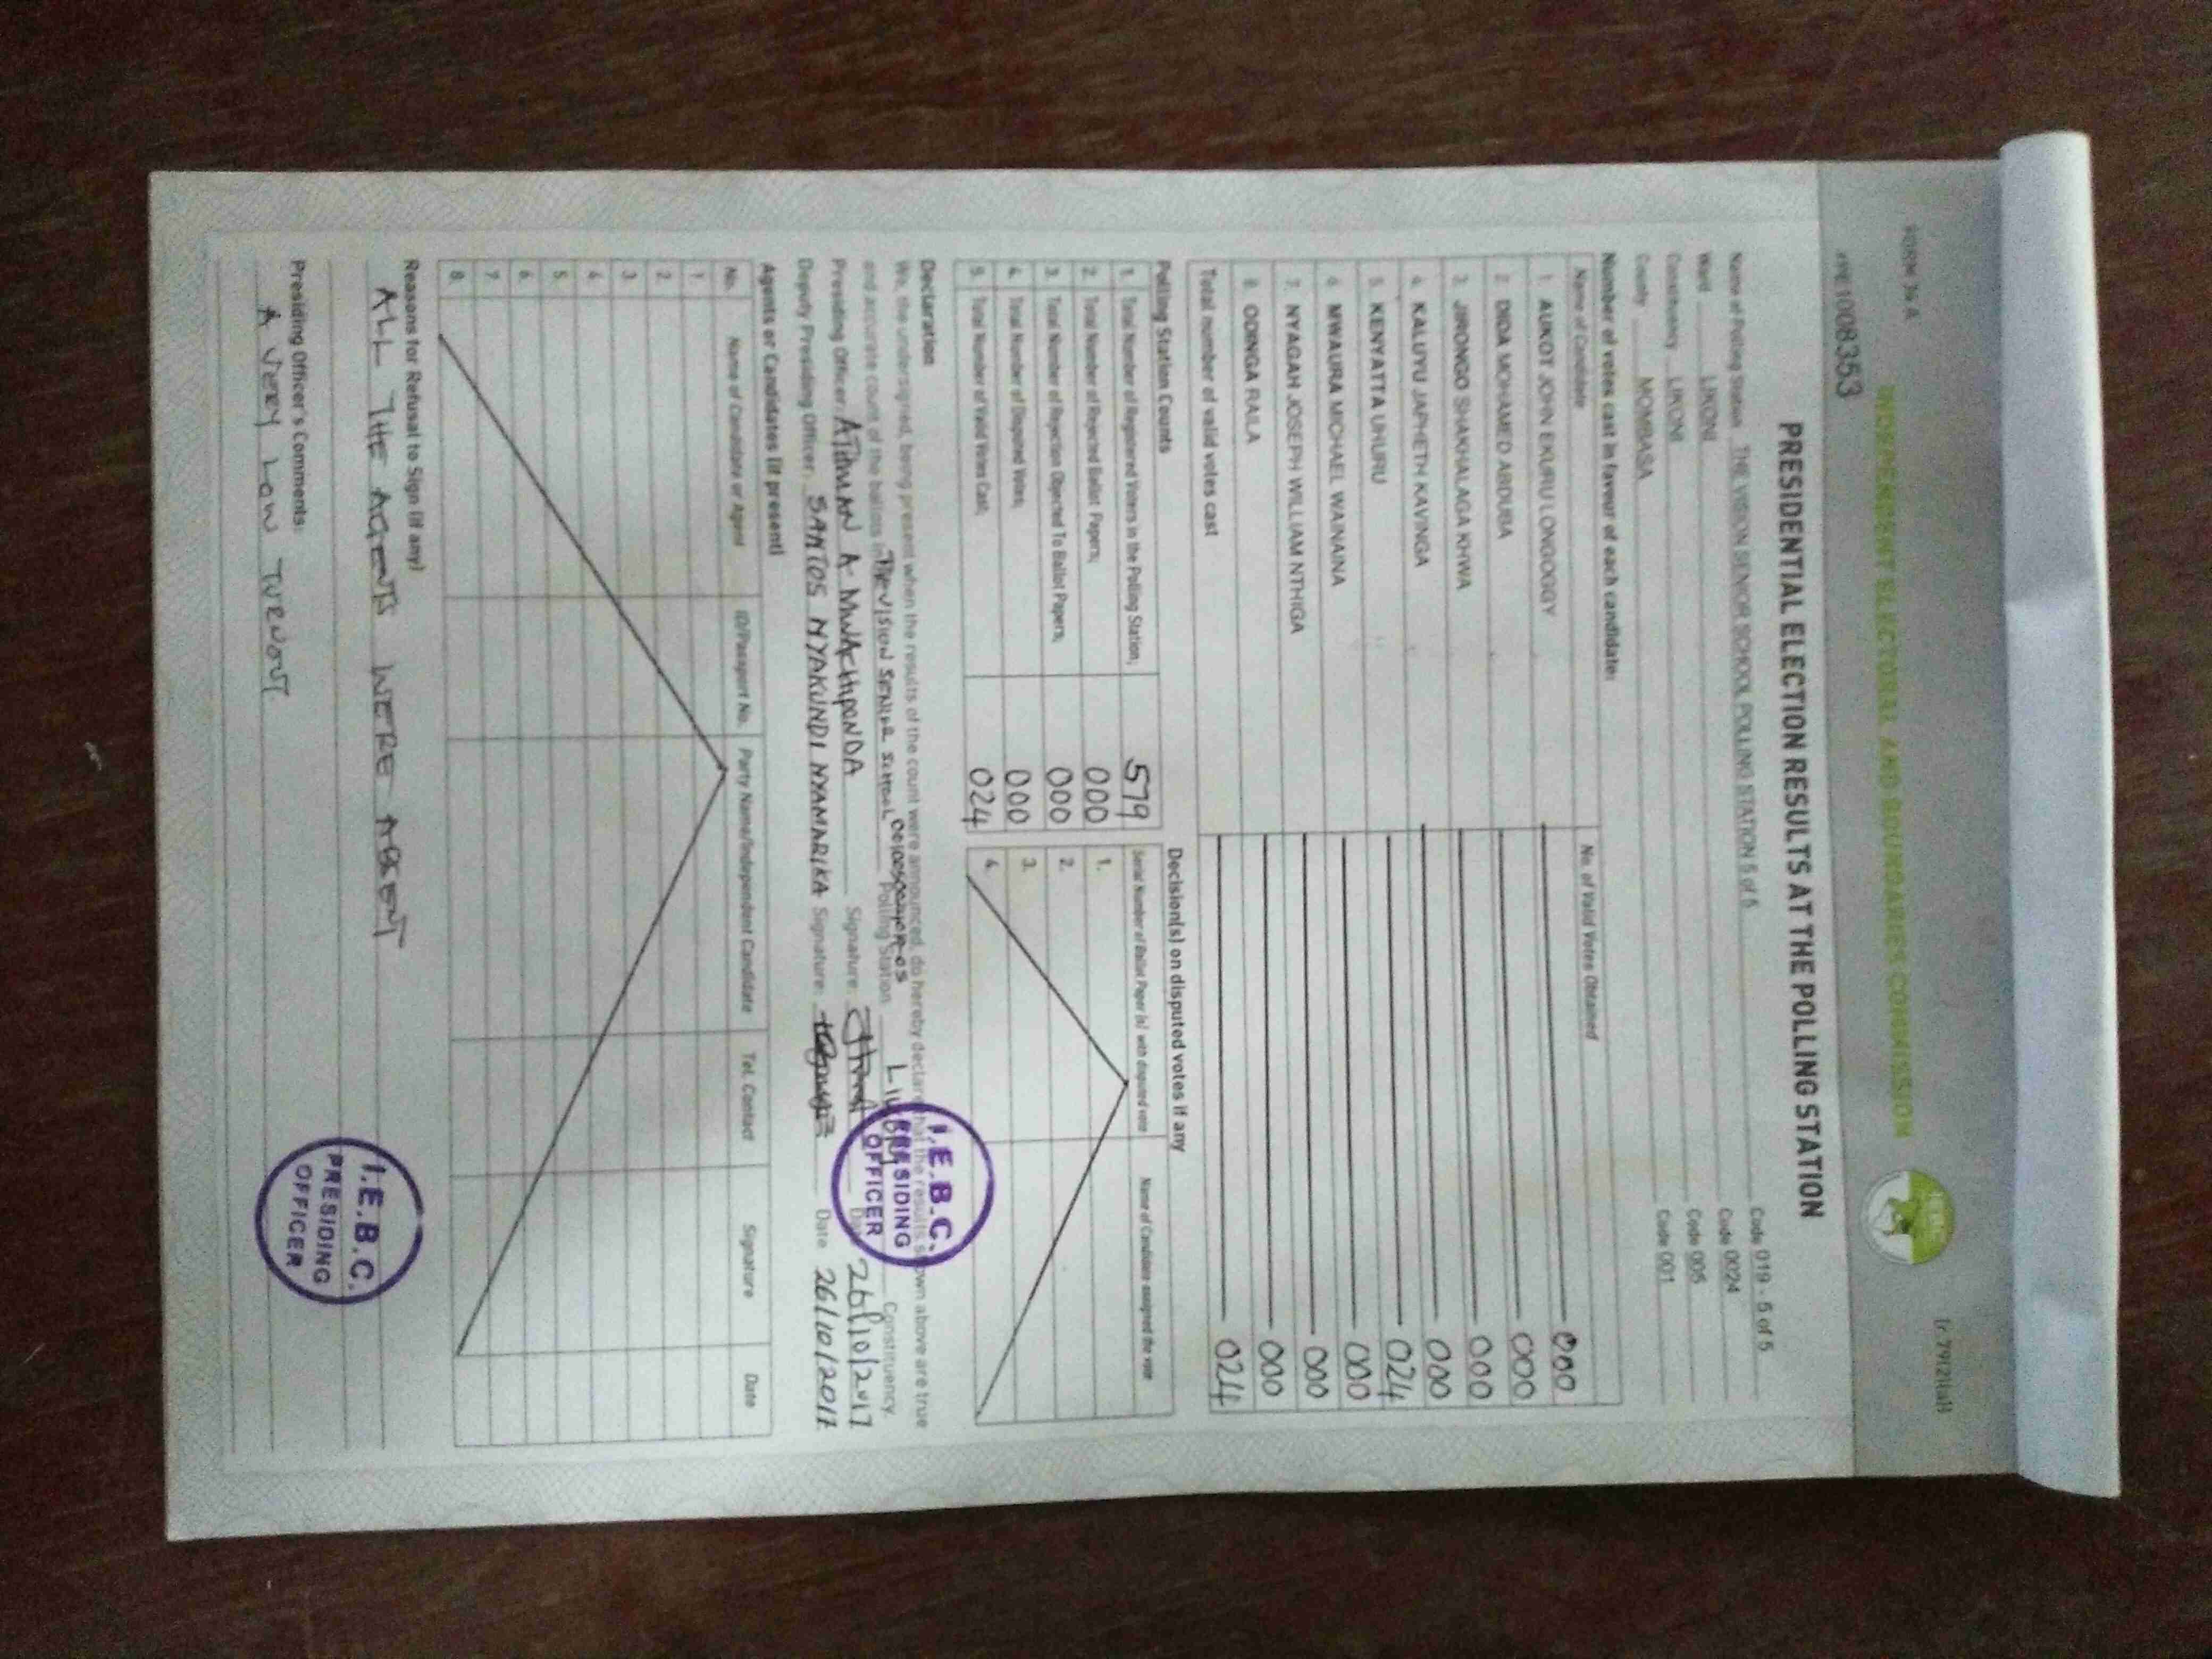 FORM 34A
(r.79(2)(a))
INDEPENDENT ELECTORAL AND BOUNDARIES COMMISSION
IEBC
1008353
PRESIDENTIAL ELECTION RESULTS AT THE POLLING STATION
Name of Polling Station THE VISION SENIOR SCHOOL POLLING STATION 5 of 5 Code 019 - 5 of 5
Ward LIKONI Code 0024
Constituency LIKONI Code 005
County MOMBASA Code 001
Number of votes cast in favor of each candidate:
Name of Candidate No. of Valid Votes Obtained
1. AUKOT JOHN EKURU LONGOGGY 000
2. DIDA MOHAMED ABDUBA 000
3. JIRONGO SHAKHALAGA KHWA 000
4. KALUYU JAPHETH KAVINGA 000
5. KENYATTA UHURU 024
6. MWAURA MICHAEL WAINAINA 000
7. NYAGAH JOSEPH WILLIAM NTHIGA 000
8. ODINGA RAILA 000
Total number of valid votes cast 024
Polling Station Counts Decision(s) on disputed votes if any
1. Total Number of Registered Voters in the Polling Station; 579 Serial Number of Ballot Paper (s) with disputed vote Name of Candidate assigned the vote
2. Total Number of Rejected Ballot Papers; 000 1.
3. Total Number of Rejection Objected To Ballot Papers; 000 2.
4. Total Number of Disputed Votes; 000 3.
5. Total Number of Valid Votes Cast; 024 4.
Declaration
We, the undersigned, being present when the results of the count were announced, do hereby declare that the results shown above are true
and accurate count of the ballots in THE VISION SENIOR SCHOOL Polling Station LIKONI Constituency.
Presiding Officer: ATHMAN A. Signature: Date 26/10/2017
Deputy Presiding Officer: SANTOS NYAKUNDI NYAMARIKA Signature: Date 26/10/2017
I.E.B.C.
PRESIDING
OFFICER
Agents or Candidates (if present)
No. Name of Candidate or Agent ID/Passport No. Party Name/Independent Candidate Tel. Contact Signature Date
1.
2.
3.
4.
5.
6.
7.
8.
Reasons for Refusal to Sign (if any)
ALL THE AGENTS WERE ABSENT
Presiding Officer's Comments:
A VERY LOW TURNOUT.
I.E.B.C.
PRESIDING
OFFICER